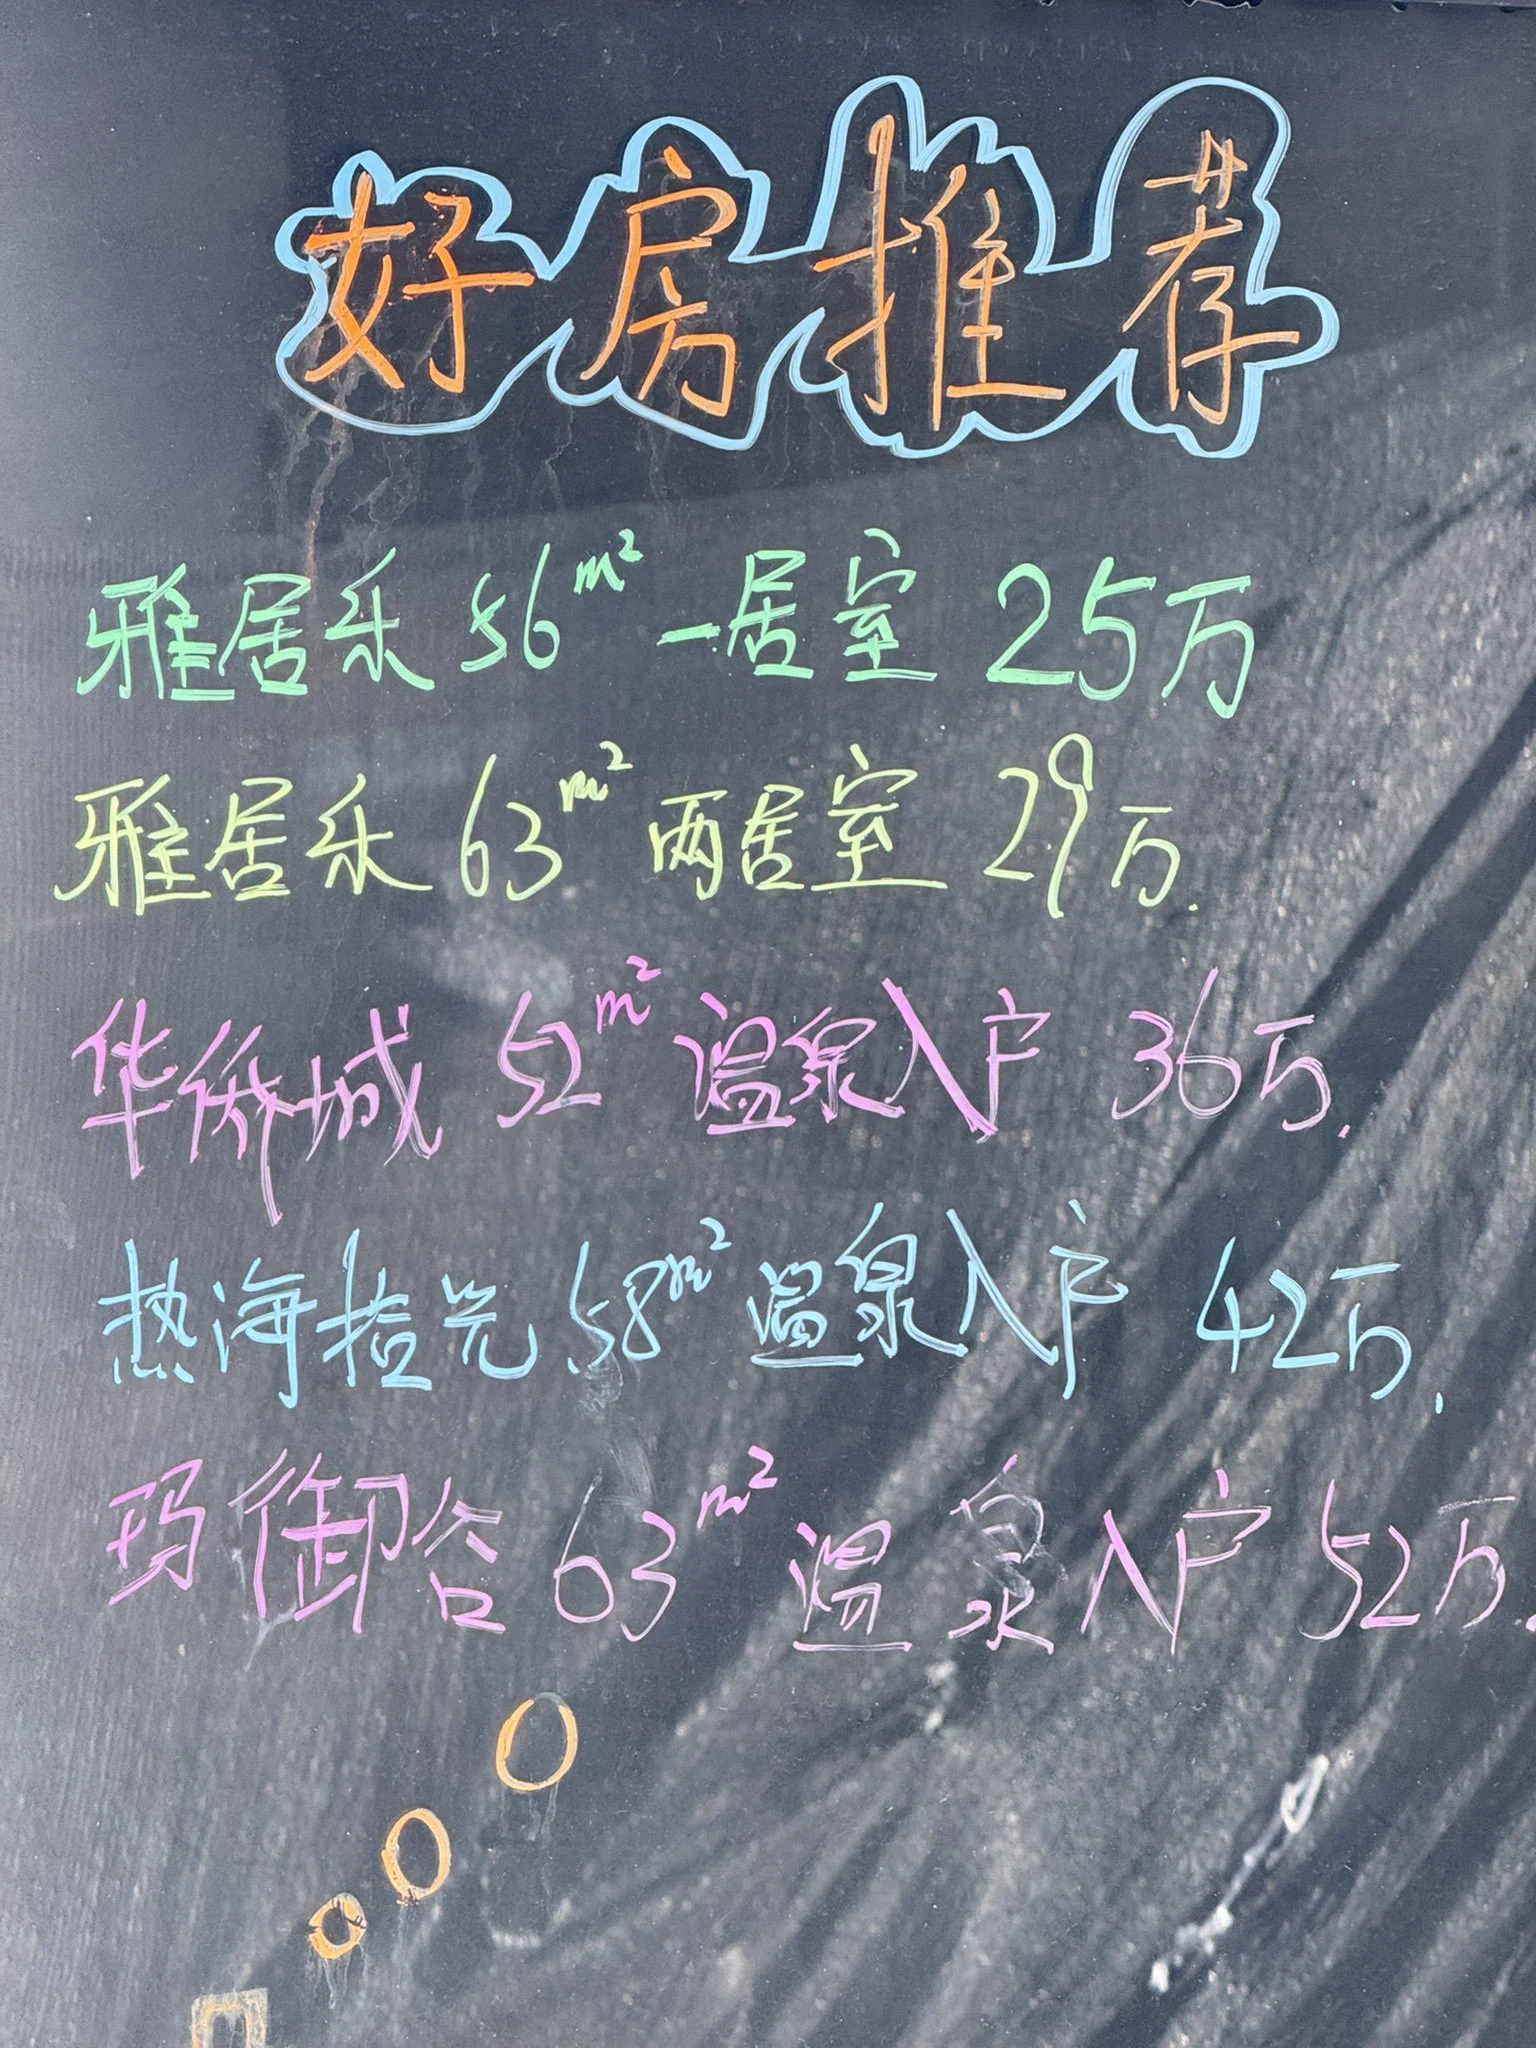 好房推荐
雅居乐 56m² 一居室 25万
雅居乐 63m² 两居室 29万.
华侨城 52m² 温泉入户 36万.
热海拾光 58m² 温泉入户 42万.
玛御谷 63m² 温泉入户 52万.